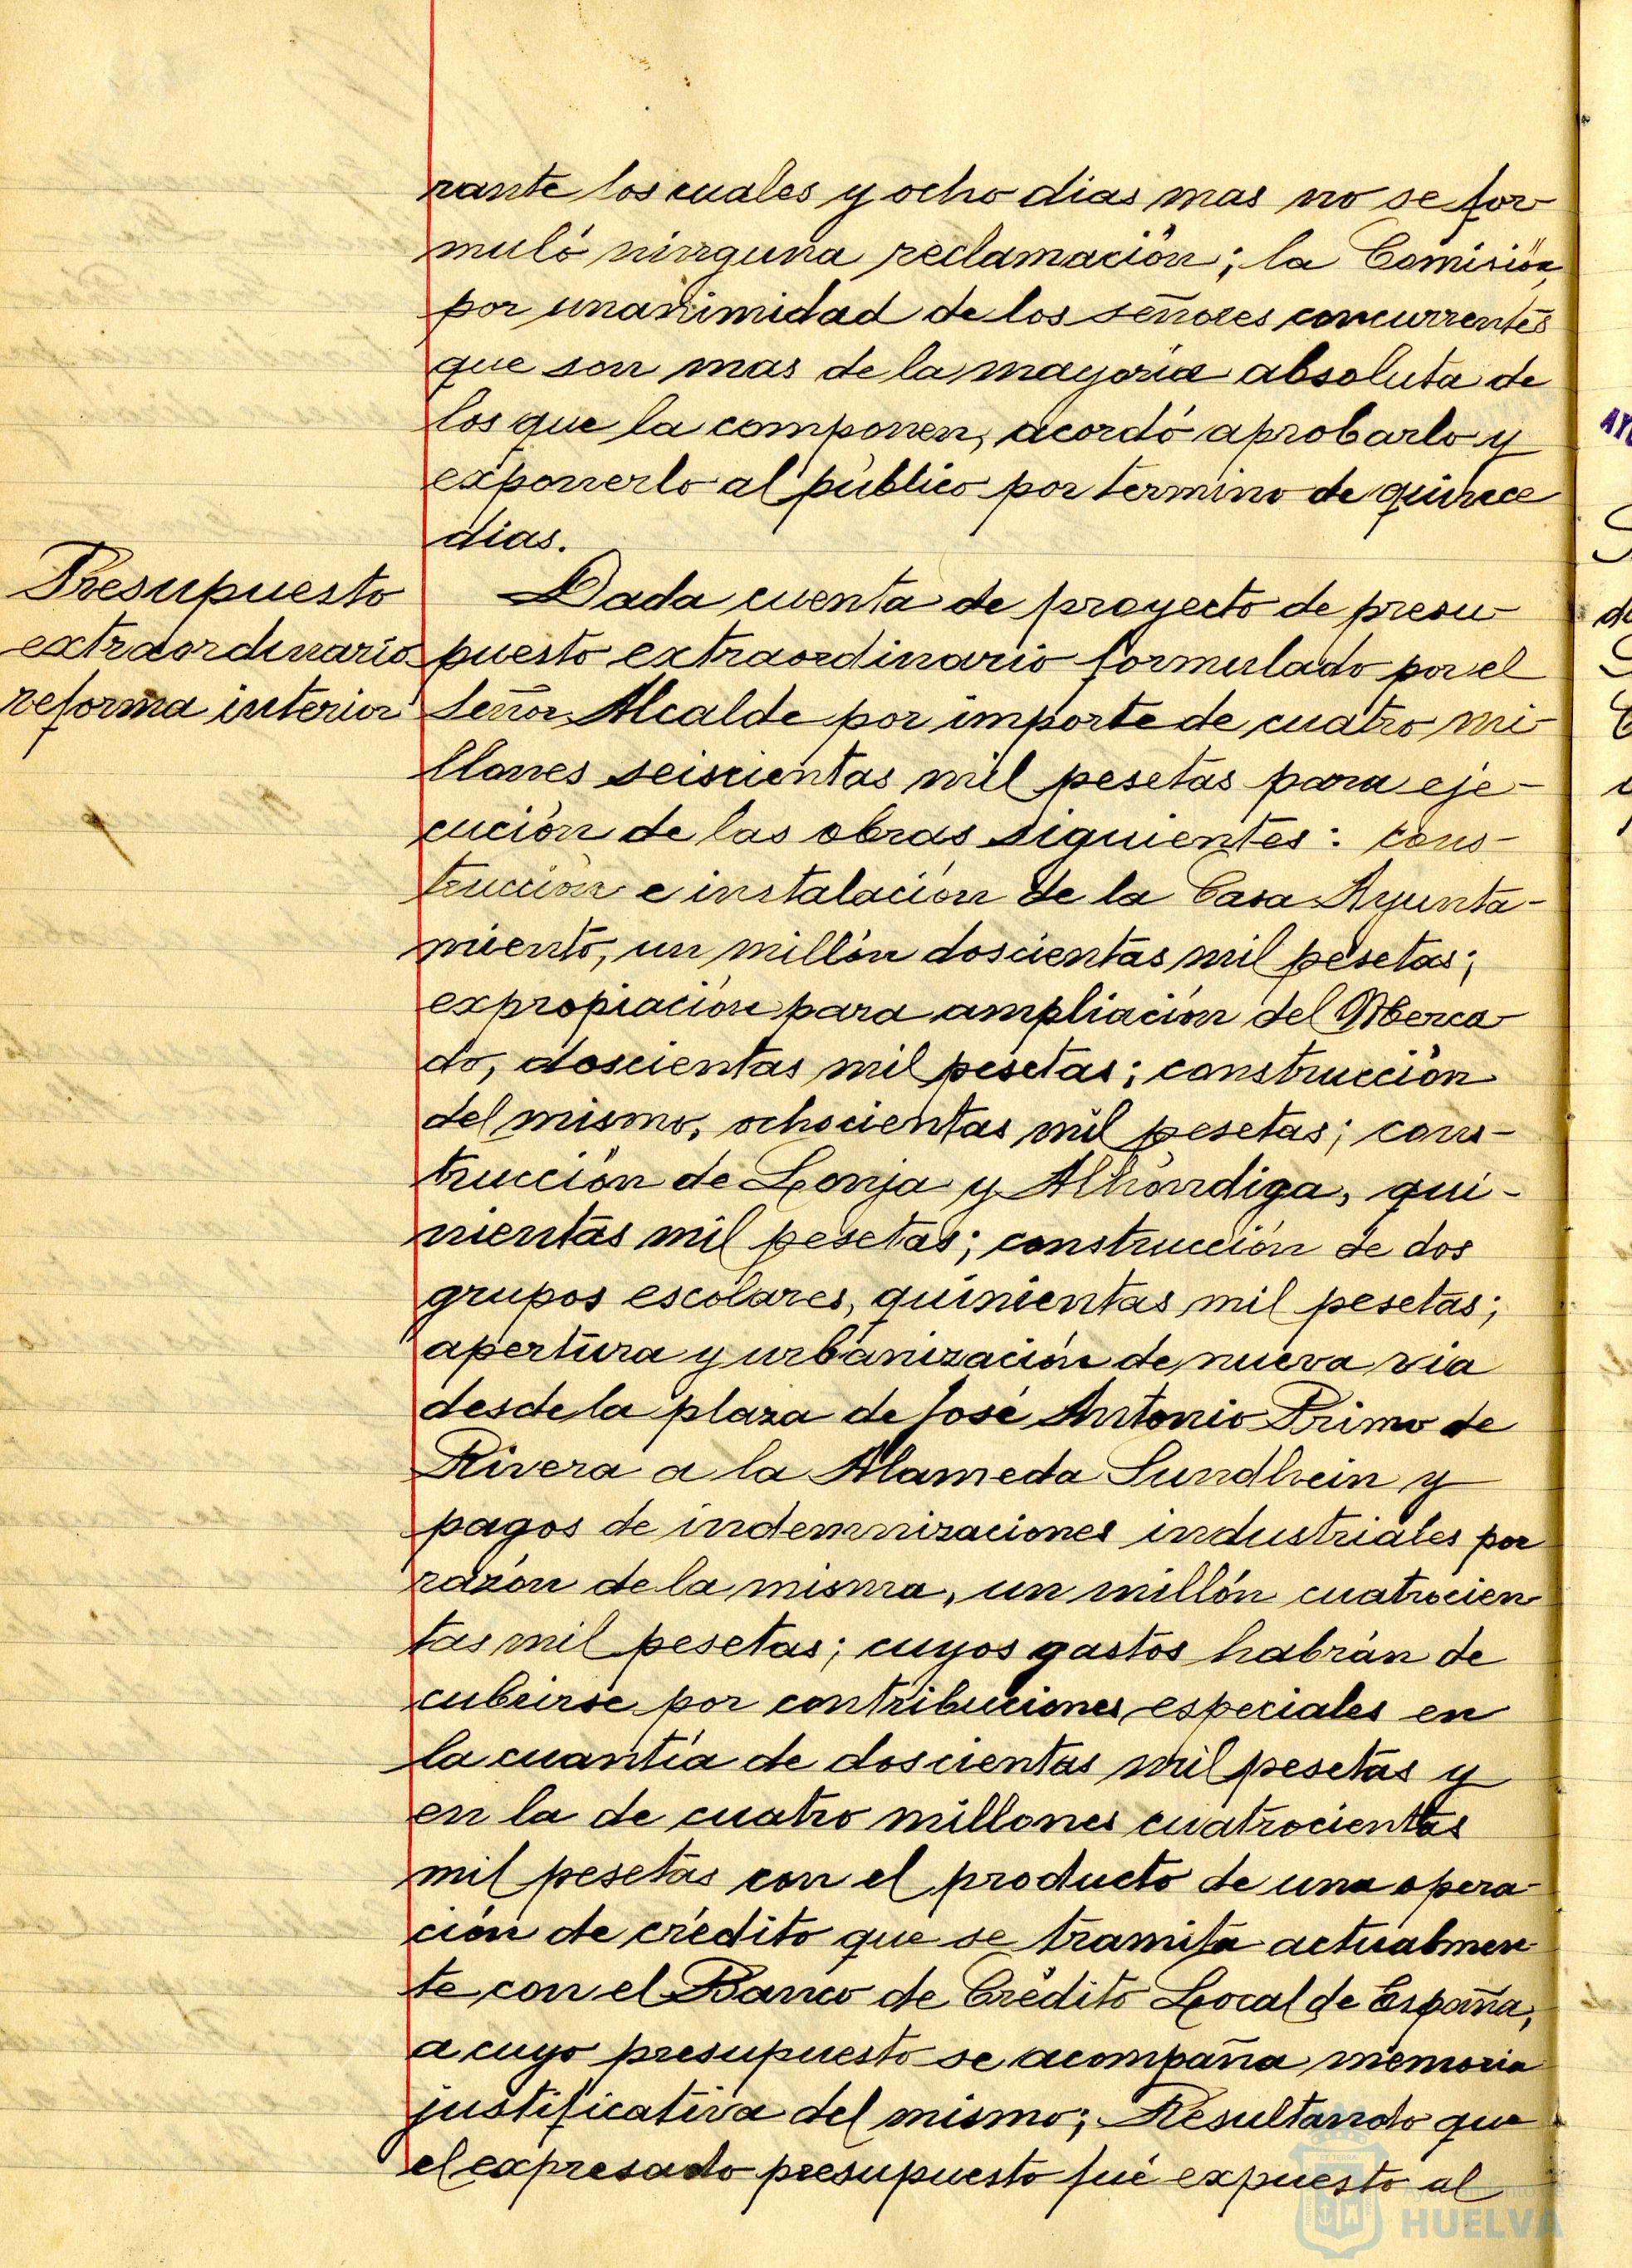 rante los cuales y ocho dias mas no se for
muló ninguna reclamación; la Comisión,
por unanimidad de los señores concurrentes
que son mas de la mayoria absoluta de
los que la componen, acordó aprobarlo y
exponerlo al público por termino de quince
dias.
Presupuesto
extraordinario
reforma interior
Dada cuenta de proyecto de presu-
puesto extraordinario formulado por el
Señor Alcalde por importe de cuatro mi-
llones seiscientas mil pesetas para eje-
cución de las obras siguientes: cons-
trucción e instalación de la Casa Ayunta-
miento, un millón doscientas mil pesetas;
expropiación para ampliación del Merca-
do, doscientas mil pesetas; construcción
del mismo, ochocientas mil pesetas; cons-
trucción de Lonja y Alhóndiga, qui-
nientas mil pesetas; construcción de dos
grupos escolares, quinientas mil pesetas;
apertura y urbanización de nueva via
desde la plaza de José Antonio Primo de
Rivera a la Alameda Sundhein y
pagos de indemnizaciones industriales por
razón de la misma, un millón cuatrocien
tas mil pesetas; cuyos gastos habrán de
cubrirse por contribuciones especiales en
la cuantía de doscientas mil pesetas y
en la de cuatro millones cuatrocientas
mil pesetas con el producto de una opera-
ción de crédito que se tramita actualmen
te con el Banco de Crédito Local de España,
a cuyo presupuesto se acompaña memoria
justificativa del mismo; Resultando que
el expresado presupuesto fué expuesto al
HUELVA